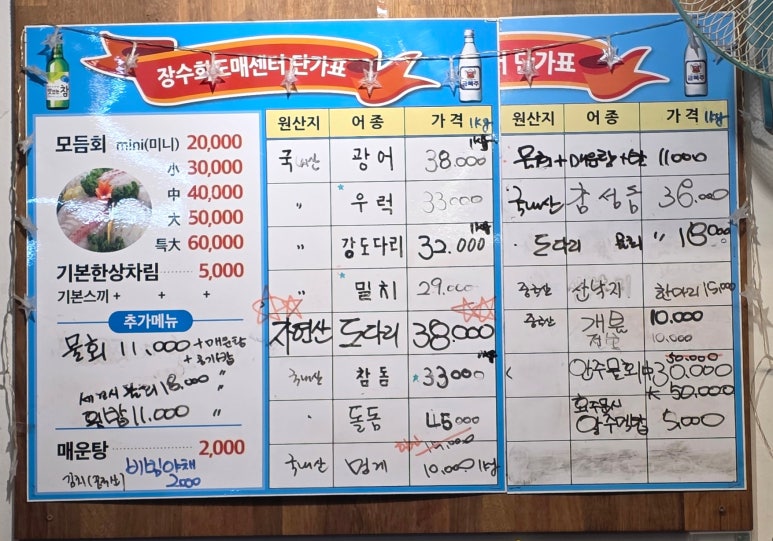 장수회도매센터 단가표
어 단가표
모듬회 mini(미니) 20,000
小 30,000
中 40,000
大 50,000
특大 60,000
기본한상차림 5,000
기본스끼 + + +
추가메뉴
물회 11,000 +매운탕
18,000 〃
회밥 11,000 〃
매운탕 2,000
비빔야채
2000
원산지 어종 가격 1kg
국내산 광어 38.000 1kg
〃 우럭 33000
〃 강도다리 32.000 1kg
〃 밀치 29.000
자연산 도다리 38.000
국내산 참돔 33000 1kg
돌돔 45000
국내산 멍게 10.000 1kg
원산지 어종 가격 1kg
물회+매운탕+밥 11000
국내산 참성돔 36.000
도다리 〃 18000
중국산 산낙지 한마리 15,000
중국산 개불 10.000
10.000
양주물회 中 30.000
50.000
大 50.000
5,000